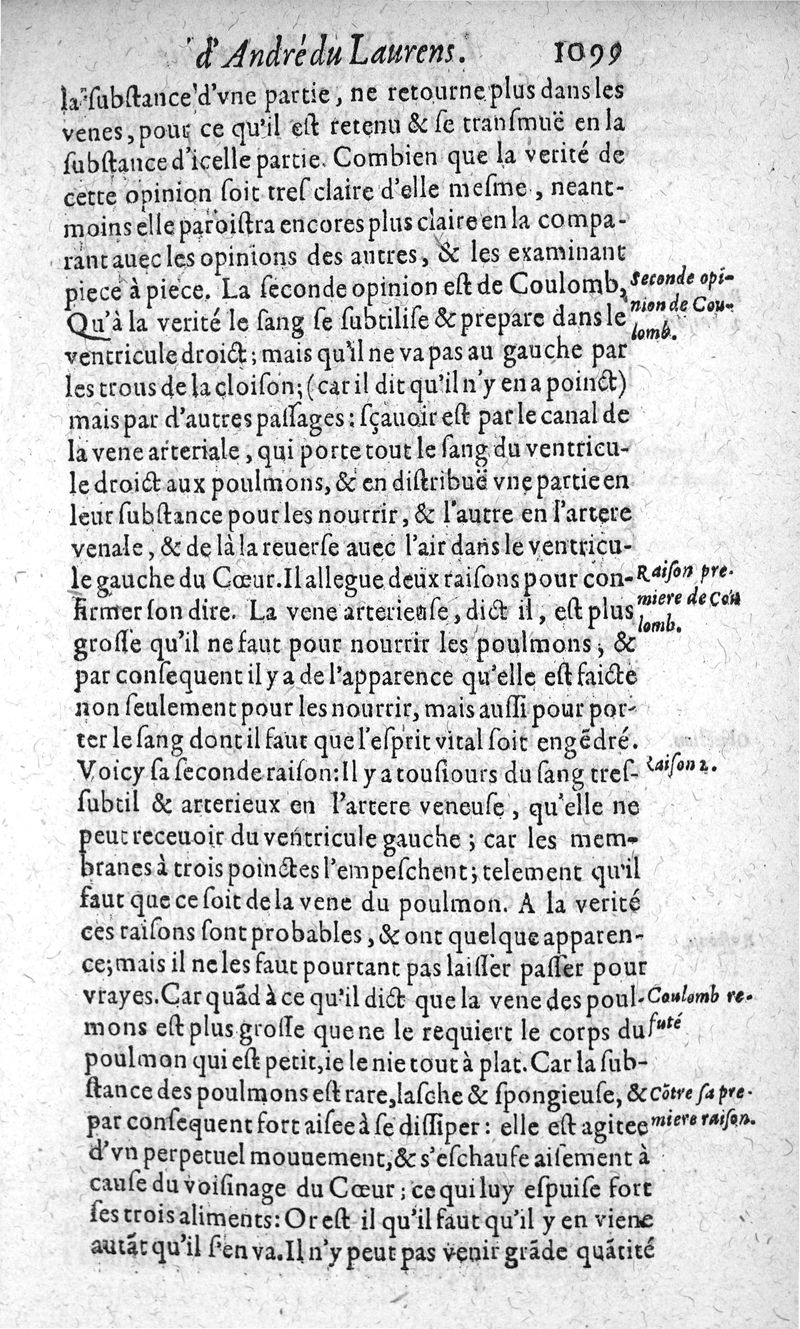 d'André du Laurens. 1099
la ſubſtance d'vne partie, ne retourne plus dans les
venes, pour ce qu'il eſt retenu & ſe tranſmuë en la
ſubſtance d'icelle partie. Combien que la verité de
cette opinion ſoit treſ claire d'elle meſme, neant-
moins elle paroiſtra encores plus claire en la compa-
rant auec les opinions des autres, & les examinant
piece à piece. La ſeconde opinion eſt de Coulomb,
Seconde opi-
nion de Cou-
lomb.
Qu'à la verité le ſang ſe ſubtiliſe & prepare dans le
ventricule droict; mais qu'il ne va pas au gauche par
les trous de la cloiſon; (car il dit qu'il n'y en a poinct)
mais par d'autres paſſages: ſçauoir eſt par le canal de
la vene arteriale, qui porte tout le ſang du ventricu-
le droict aux poulmons, & en diſtribuë vne partie en
leur ſubſtance pour les nourrir, & l'autre en l'artere
venale, & de là la reuerſe auec l'air dans le ventricu-
le gauche du Cœur. Il allegue deux raiſons pour con-
Raiſon pre-
miere de Cou
lomb.
firmer ſon dire. La vene arterieuſe, dict il, eſt plus
groſſe qu'il ne faut pour nourrir les poulmons, &
par conſequent il y a de l'apparence qu'elle eſt faicte
non ſeulement pour les nourrir, mais auſſi pour por-
ter le ſang dont il faut que l'eſprit vital ſoit engēdré.
Voicy ſa ſeconde raiſon: Il y a touſiours du ſang treſ-
Raiſon 2.
ſubtil & arterieux en l'artere veneuſe, qu'elle ne
peut receuoir du ventricule gauche; car les mem-
branes à trois poinctes l'empeſchent; telement qu'il
faut que ce ſoit de la vene du poulmon. A la verité
ces raiſons ſont probables, & ont quelque apparen-
ce; mais il ne les faut pourtant pas laiſſer paſſer pour
vrayes. Car quãd à ce qu'il dict que la vene des poul-
Coulomb re-
futé
mons eſt plus groſſe que ne le requiert le corps du
poulmon qui eſt petit, ie le nie tout à plat. Car la ſub-
ſtance des poulmons eſt rare, laſche & ſpongieuſe, &
Cõtre ſa pre-
miere raiſon.
par conſequent fort aiſee à ſe diſſiper: elle eſt agitee
d'vn perpetuel mouuement, & s'eſchaufe aiſement à
cauſe du voiſinage du Cœur; ce qui luy eſpuiſe fort
ſes trois aliments: Or eſt il qu'il faut qu'il y en viene
autãt qu'il ſ'en va. Il n'y peut pas venir grãde quãtité